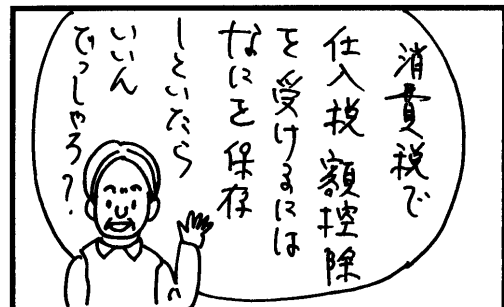 消費税で
仕入税額控除
を受けるには
なにを保存
しといたら
いいん
でっしゃろ？